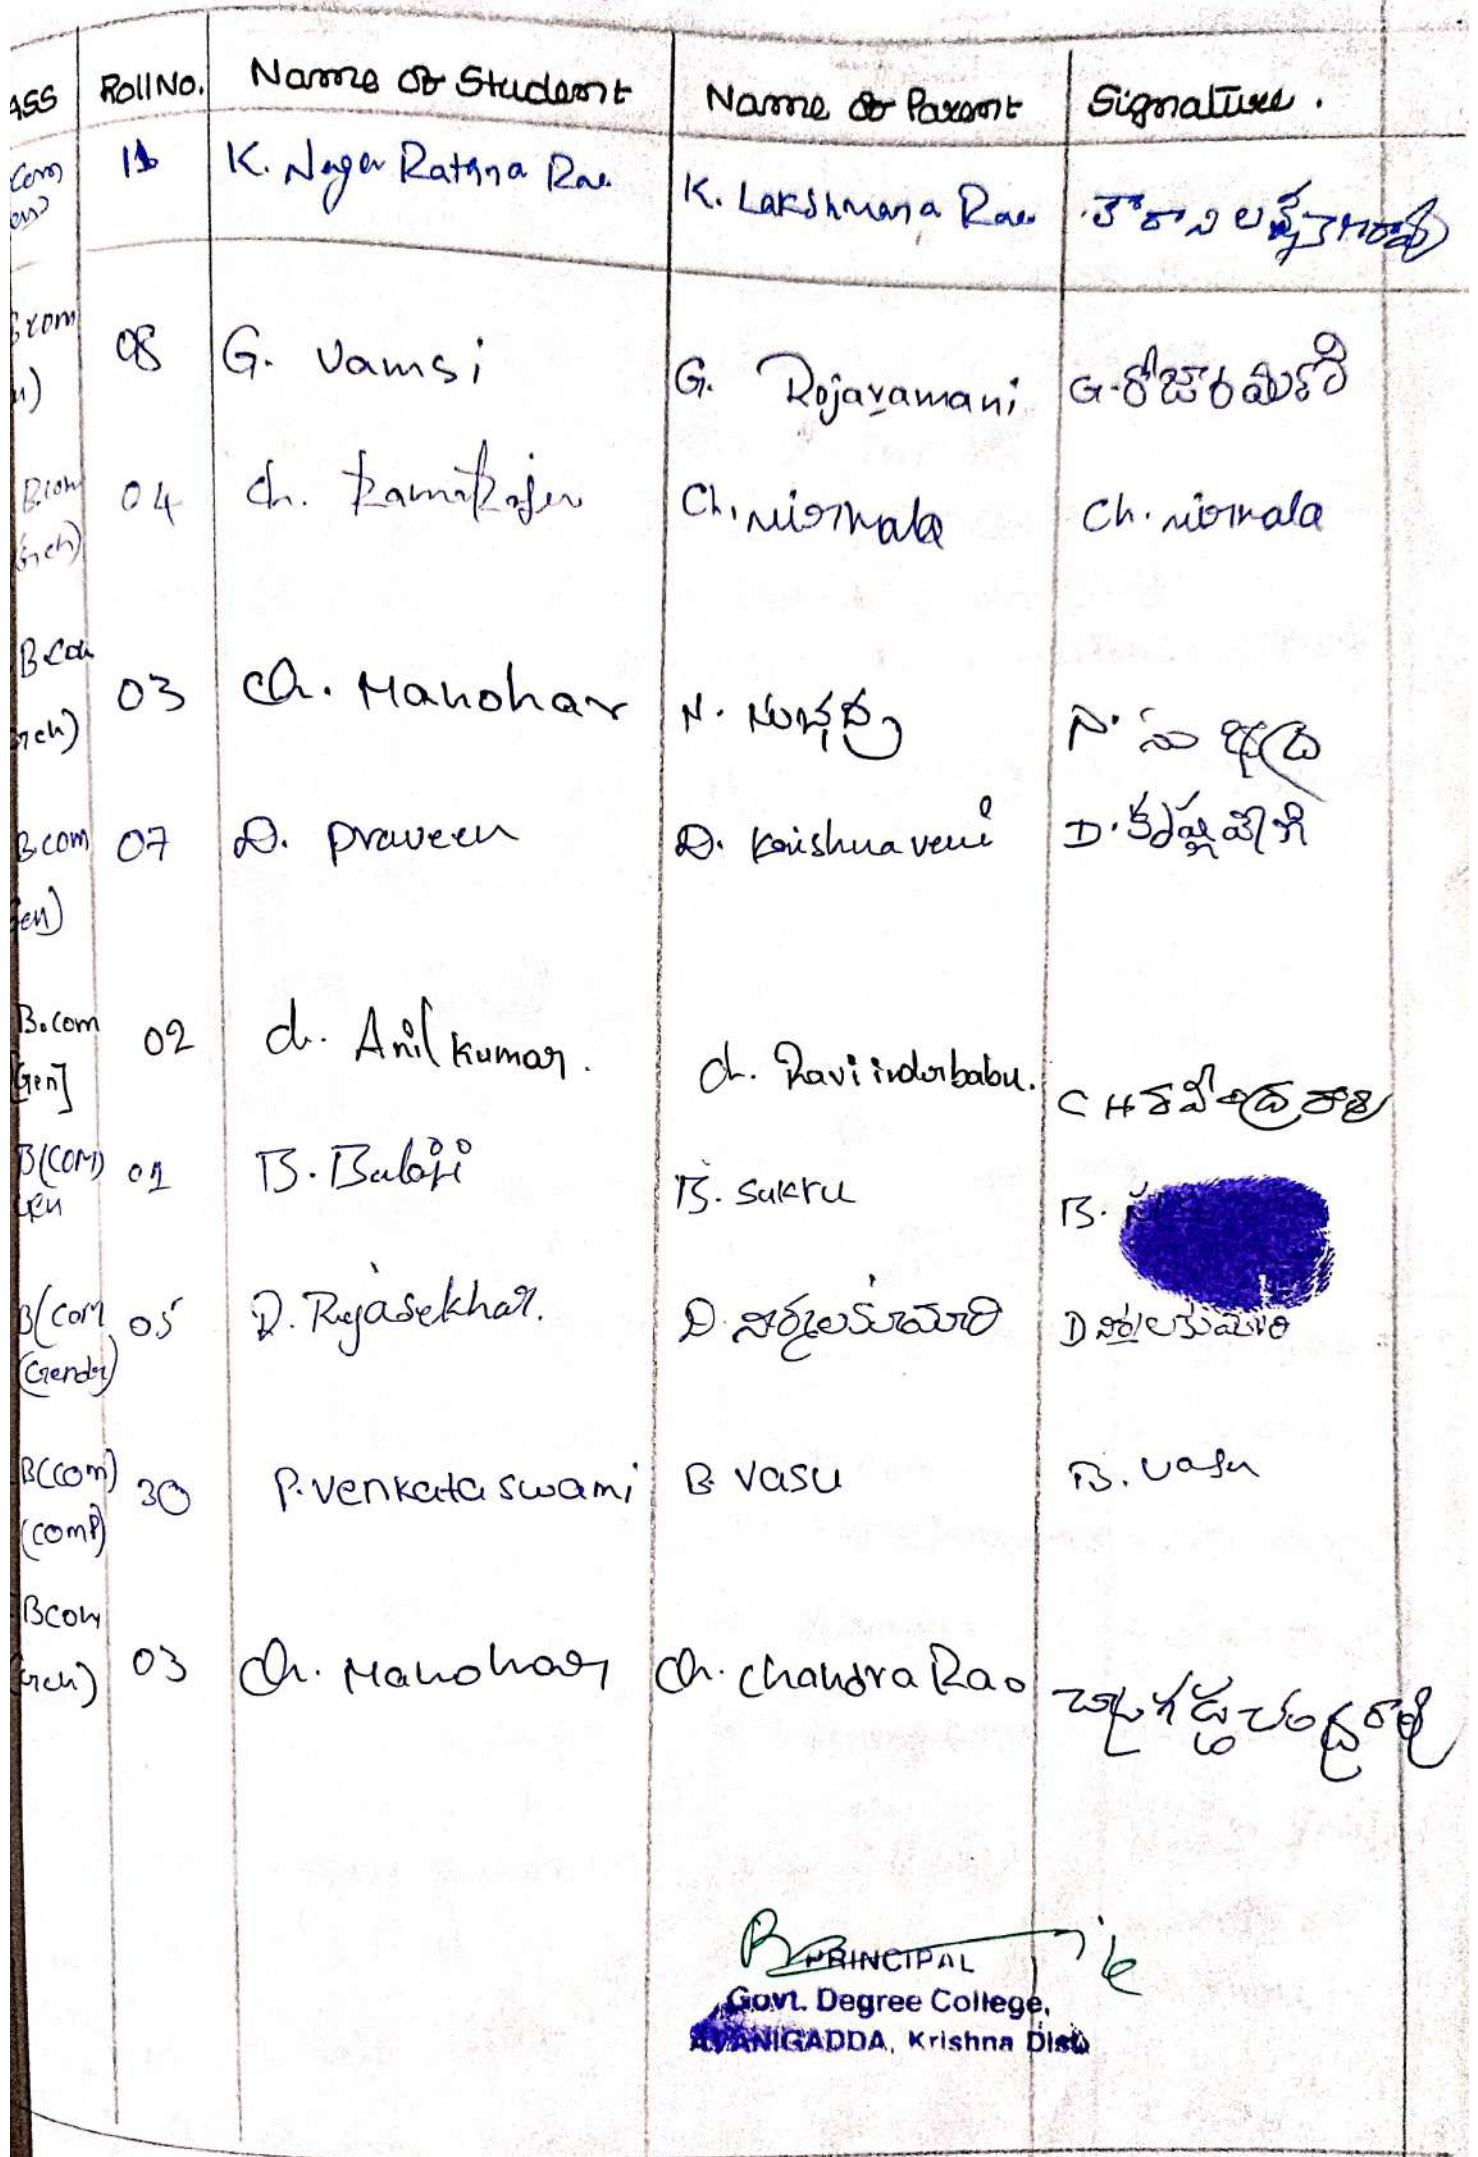 ASS Roll No. Name of Student Name of Parent Signature.
Com 11 K. Naga Rathna Rao K. Lakshmana Rao
B.com 08 G. Vamsi G. Rojaramani G. రోజారమణి
B.com 04 Ch. Ch. nirmala Ch. nirmala
B.Com 03 Ch. Manohar N. సుభద్ర N. సుభద్ర
B.com 07 D. praveen D. Krishnaveni D. కృష్ణవేణి
en)
B.com 02 ch. Anil Kumar. ch. Raviinderbabu. CH
Gen]
B(COM) 01 B. Balaji B. sukru B.
Gen
B(com 05 D. Rajasekhar. D. నిర్మలకుమారి D నిర్మలకుమారి
B(com) 30 P. venkata swami B. vasu B. vasu
(comp)
Bcom 03 Ch. Manohar Ch. Chandra Rao
PRINCIPAL
Govt. Degree College,
AVANIGADDA, Krishna Dist.